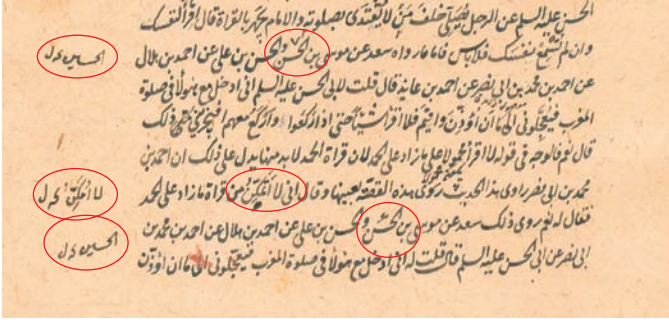 الحسن عليه السلم عن الرجل يصلي خلف من لا يقتدى بصلوته والامام يجهر بالقراة قال اقرأ لنفسك
وان لم تسمع نفسك فلا باس فاما ما رواه سعد عن موسى بن الحسن والحسن بن علي عن احمد بن هلال
الحسين كل
عن احمد بن محمد بن ابي نصر عن احمد بن عايذ قال قلت لابي الحسن عليه السلم اني ادخل مع هولاء في صلوة
المغرب فيعجلوني الى ما ان اؤذن واقيم فلا اقرأ شيئا حتى اذا ركعوا واركع معهم افيجزيني ذلك
قال نعم فالوجه في قوله لا اقرأ محمول على ما زاد على الحمد لان قراة الحمد لا بد منها يدل على ذلك ان احمد بن
محمد بن ابي نصر راوى هذا الحديث روى هذه القصة بعينها وقال اني لا اتمكن من قراة ما زاد على الحمد
لا امكن كل
فقال له نعم روى ذلك سعد عن موسى بن الحسن والحسن بن علي عن احمد بن هلال عن احمد بن محمد بن
الحسين كل
ابي نصر عن ابي الحسن عليه السلم قال قلت له اني ادخل مع هولاء في صلوة المغرب فيعجلوني الى ما ان اؤذن